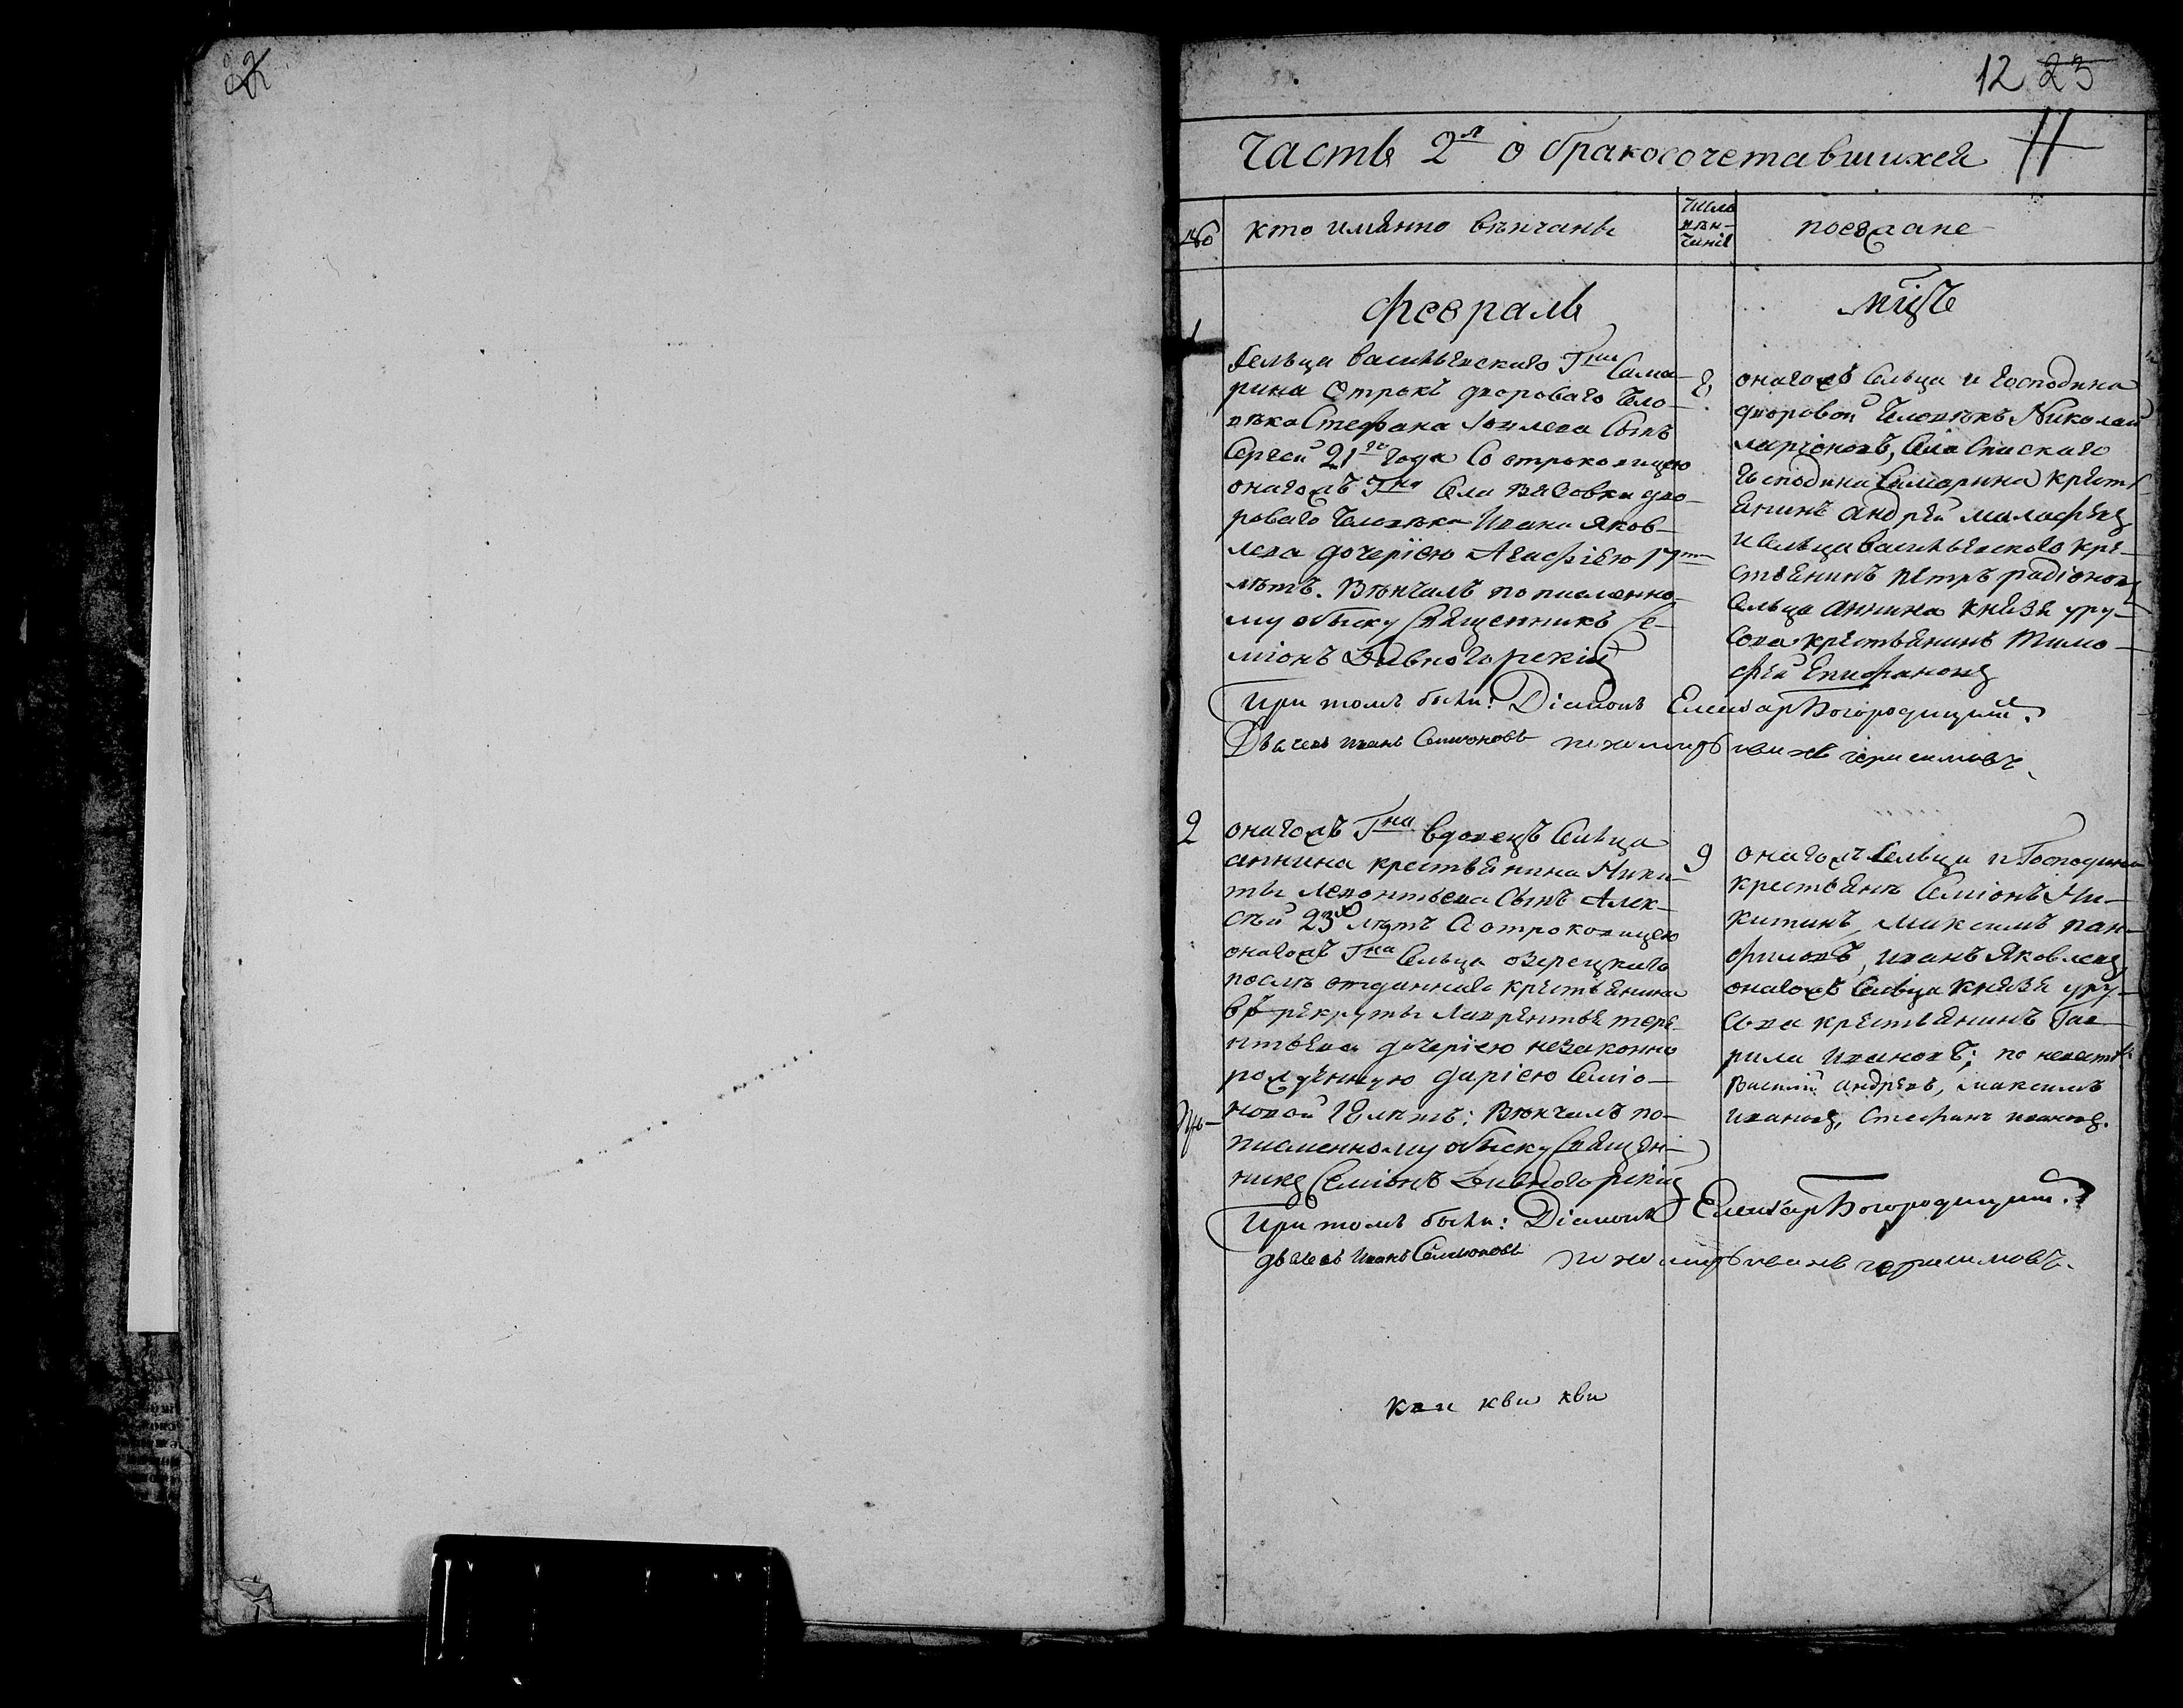 22
12 23
Часть 2я о бракосочетавшихся 11
№ кто имянно венчанъ
число
вѣн-
чанiя
поезжане
Февраль мцъ
1
Сельца Васильевскаго Гна Сама-
рина отрокъ двороваго чело-
вѣка Стефана сынъ
Сергей 21го года со отроковицею
оногожъ Гна села дво-
роваго человѣка Ивана Яков-
лева дочерiею Агафiею 17ть
лѣтъ. Вѣнчалъ по писменно-
му обыску священникъ Се-
мiонъ Дивногорскiй
8
оногожъ сельца и господина
дворовой человѣкъ Николай
ларiоновъ, села Спаскаго
господина Самарина крест-
янинъ андрей малафѣев
и сельца васильевского кре-
стьянинъ петръ радiонов
сельца аннина князя уру-
сова крестьянинъ Тимо-
фей Епифанов
При томъ были: Дiаконъ Елеазар Богородицкий.
Дьячекъ иванъ Семионовъ пономарь иванъ герасимовъ.
2
оногожъ Гна вдовецъ сельца
аннина крестьянина Ники-
ты леонтьева сынъ Алек-
сѣй 23х лѣтъ со отроковицею
оногожъ Гна сельца озерецкаго
послѣ отданнаго крестьянина
въ рекруты лаврентья тере-
нтьева дочерiею незаконно
рожденную дарiею Семiо-
новой 18 лѣтъ: Вѣнчалъ по-
писменному обыску священ-
никъ Семiонъ Дивногорскiй
9
оногожъ сельца и Господина
крестьяня Семiонъ Ни-
китинъ, максимъ пан-
филовъ, иванъ Яковлев,
оногожъ сельца князя уру-
сова крестьянинъ Гав-
рила ивановъ; по невестѣ
Василий андреевъ, максимъ
иванов, Стефанъ иванов.
При томъ были: Дiаконъ Елеазар Богородицкий.
дьячекъ иванъ Семионовъ пономарь иванъ герасимовъ.
кви кви кви